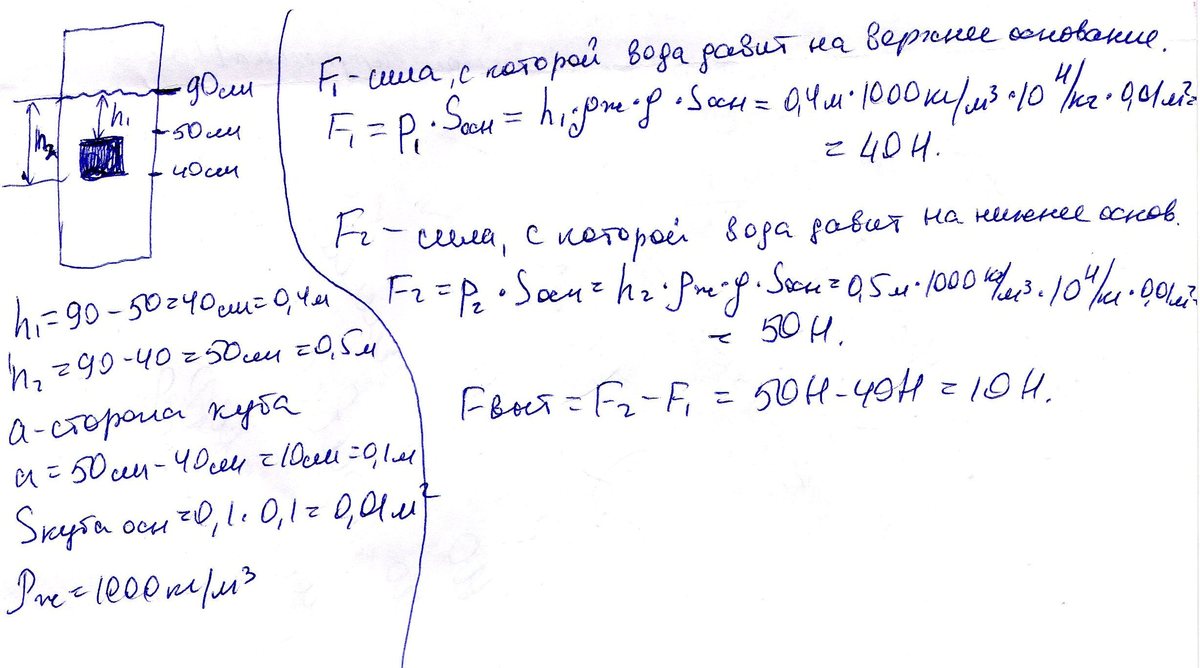 90см
h₁
50см
h₂
40см
h₁=90-50=40см=0,4м
h₂=90-40=50см=0,5м
а-сторона куба
а=50см-40см=10см=0,1м
Sкуба осн=0,1·0,1=0,01м²
ρж=1000кг/м³
F₁-сила, с которой вода давит на верхнее основание.
F₁=p₁·Sосн=h₁·ρж·g·Sосн=0,4м·1000кг/м³·10Н/кг·0,01м²=
=40Н.
F₂-сила, с которой вода давит на нижнее основ.
F₂=p₂·Sосн=h₂·ρж·g·Sосн=0,5м·1000кг/м³·10Н/кг·0,01м²
=50Н.
Fвыт=F₂-F₁=50Н-40Н=10Н.